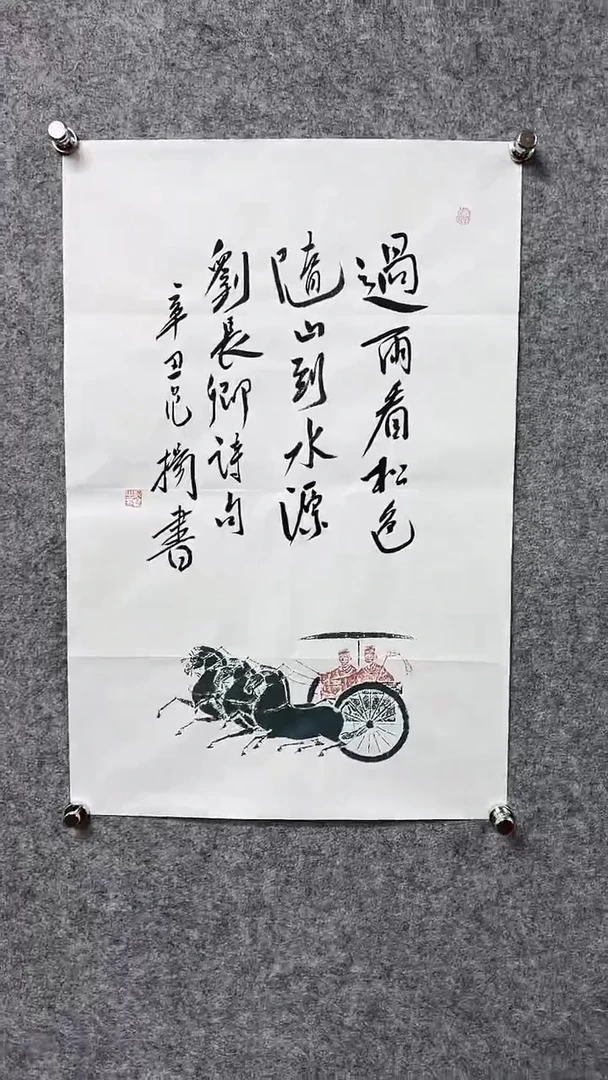 過雨看松色
隨山到水源
劉長卿詩句
辛丑范揚書